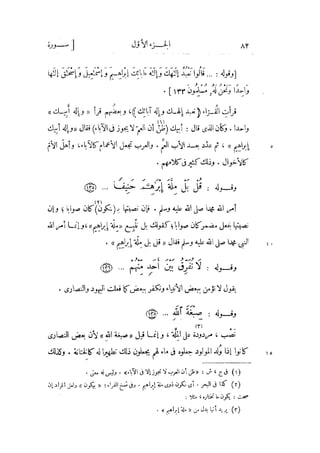 ٨٢ الجـزء الأول [ ســورة
[وقوله : ... قَالُوا نَعْبُدُ إِلَهَكَ وَإِلَهَ ءَابَائِكَ إِبْرَاهِيمَ وَإِسْمَاعِيلَ وَإِسْحَاقَ إِلَهًا
وَاحِدًا وَنَحْنُ لَهُ مُسْلِمُونَ ١٣٣ ] .
قرأت القُـرّاء «نعبد إلهـك وإله آبائك»، وبعضهم قرأ «وإله أبِيـك»
واحدا . وكأن الذى قال : أبيك (ظنّ أن العمّ لا يجوز فى الآباء) فقال «وإله أبيك
إبراهيم» ، ثم عدّد بعـد الأب العمّ . والعرب تجعل الأعمام كالآباء، وأهلَ الأمّ
كالأخوال . وذلك كثير فى كلامهم .
وقـــوله : قُلْ بَلْ مِلَّةَ إِبْرَاهِيمَ حَنِيفًا ... ١٣٥
أمر الله محمدا صلى الله عليه وسلم . فإن نصبتها بـ (نكون) كان صوابا ؛ وإن
نصبتها بفعل مضمر كان صوابا ؛ كقولك بل نتّبـع «ملة إبراهيم»، وإنمـا أمر الله
النبى محمدا صلى الله عليه وسلم فقال «قل بل ملة إبراهيم» .
وقـــوله : لَا نُفَرِّقُ بَيْنَ أَحَدٍ مِنْهُمْ ... ١٣٦
يقول لا نؤمن ببعض الأنبياء ونكفر ببعض كما فعلت اليهود والنصارى .
وقـــوله : صِبْغَةَ اللَّهِ ... ١٣٨
نَصْب ، مردودة على المِلَّة (٣)، وإنمـا قيل «صبغة الله» لأن بعض النصارى
كانوا إذا وُلِد المولود جعلوه فى ماء لهم يجعلون ذلك تطهيرا له كالختانة . وكذلك
١٥
١٠
(١) فى ج ، ش : «ظن أن العرب لا تجوز إلا فى الآباء» . وليس له معنى .
(٢) كذا فى البحر . أى نكون ذوى ملة إبراهيم . وفى نسخ الفراء : «يكون»
صحت : يكون ما نختاره ، مثلا :
(٣) يريد أنها بدل من «ملة إبراهيم» .